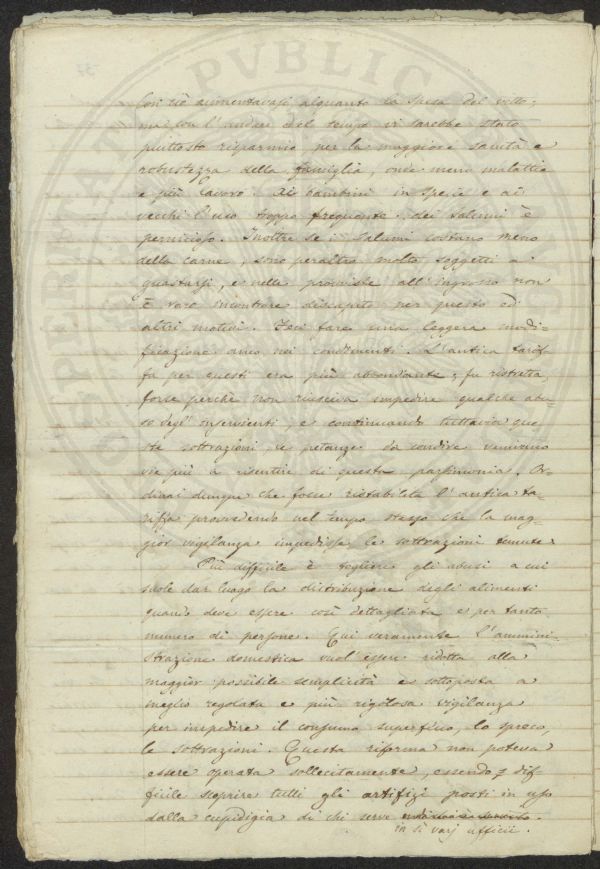 Con ciò aumentavasi alquanto la spesa del vitto;
ma con l'andare del tempo vi sarebbe stato
piuttosto risparmio per la maggiore sanità e
robustezza della famiglia, onde meno malattie
e più lavoro. Ai bambini in specie e ai
vecchi l'uso troppo frequente dei salumi è
pernicioso. Inoltre se i salumi costano meno
della carne, sono peraltro molto soggetti a
guastarsi, e nelle provviste all'ingrosso non
è raro incontrare discapito per questo ed
altri motivi. Feci fare una leggera modi-
ficazione anco nei condimenti. L'antica tarif-
fa per questi era più abbondante; fu ristretta
forse perchè non riusciva impedire qualche abu-
so degl'inservienti, e continuando tuttavia que-
ste sottrazioni, le pietanze da condire venivano
vie più a risentire di questa parsimonia. Or-
dinai dunque che fosse ristabilita l'antica ta-
riffa provvedendo nel tempo stesso che la mag-
gior vigilanza impedisse le sottrazioni temute.
Più difficile è togliere gli abusi a cui
suole dar luogo la distribuzione degli alimenti
quando deve essere così dettagliata e per tanto
numero di persone. Qui veramente l'ammini-
strazione domestica vuol essere ridotta alla
maggior possibile semplicità e sottoposta a
meglio regolata e più rigorosa vigilanza
per impedire il consumo superfluo, lo spreco,
le sottrazioni. Questa riforma non poteva
essere operata sollecitamente, essendo dif-
ficile scoprire tutti gli artifizi posti in uso
dalla cupidigia di chi serve
in sì varj ufficii.
PVBLICA